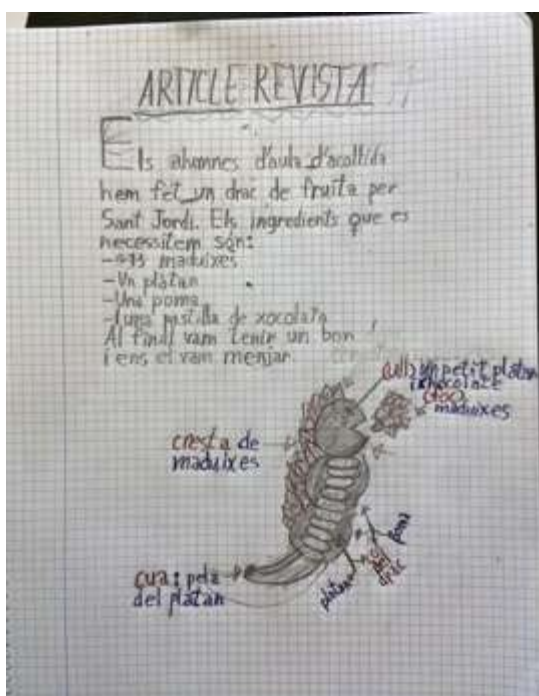 ARTICLE REVISTA
Els alumnes d'aula d'acollida
hem fet un drac de fruita per
Sant Jordi. Els ingredients que es
necessitem són:
maduixes
-Un plàtan
-Una poma
-I una pastilla de xocolata
Al final vam tenir un bon
i ens el vam menjar
ull: un petit plàtan
i xocolate
foc:
maduixes
cresta de
maduixes
cua: pela
del plàtan
plàtan
cos del drac
poma